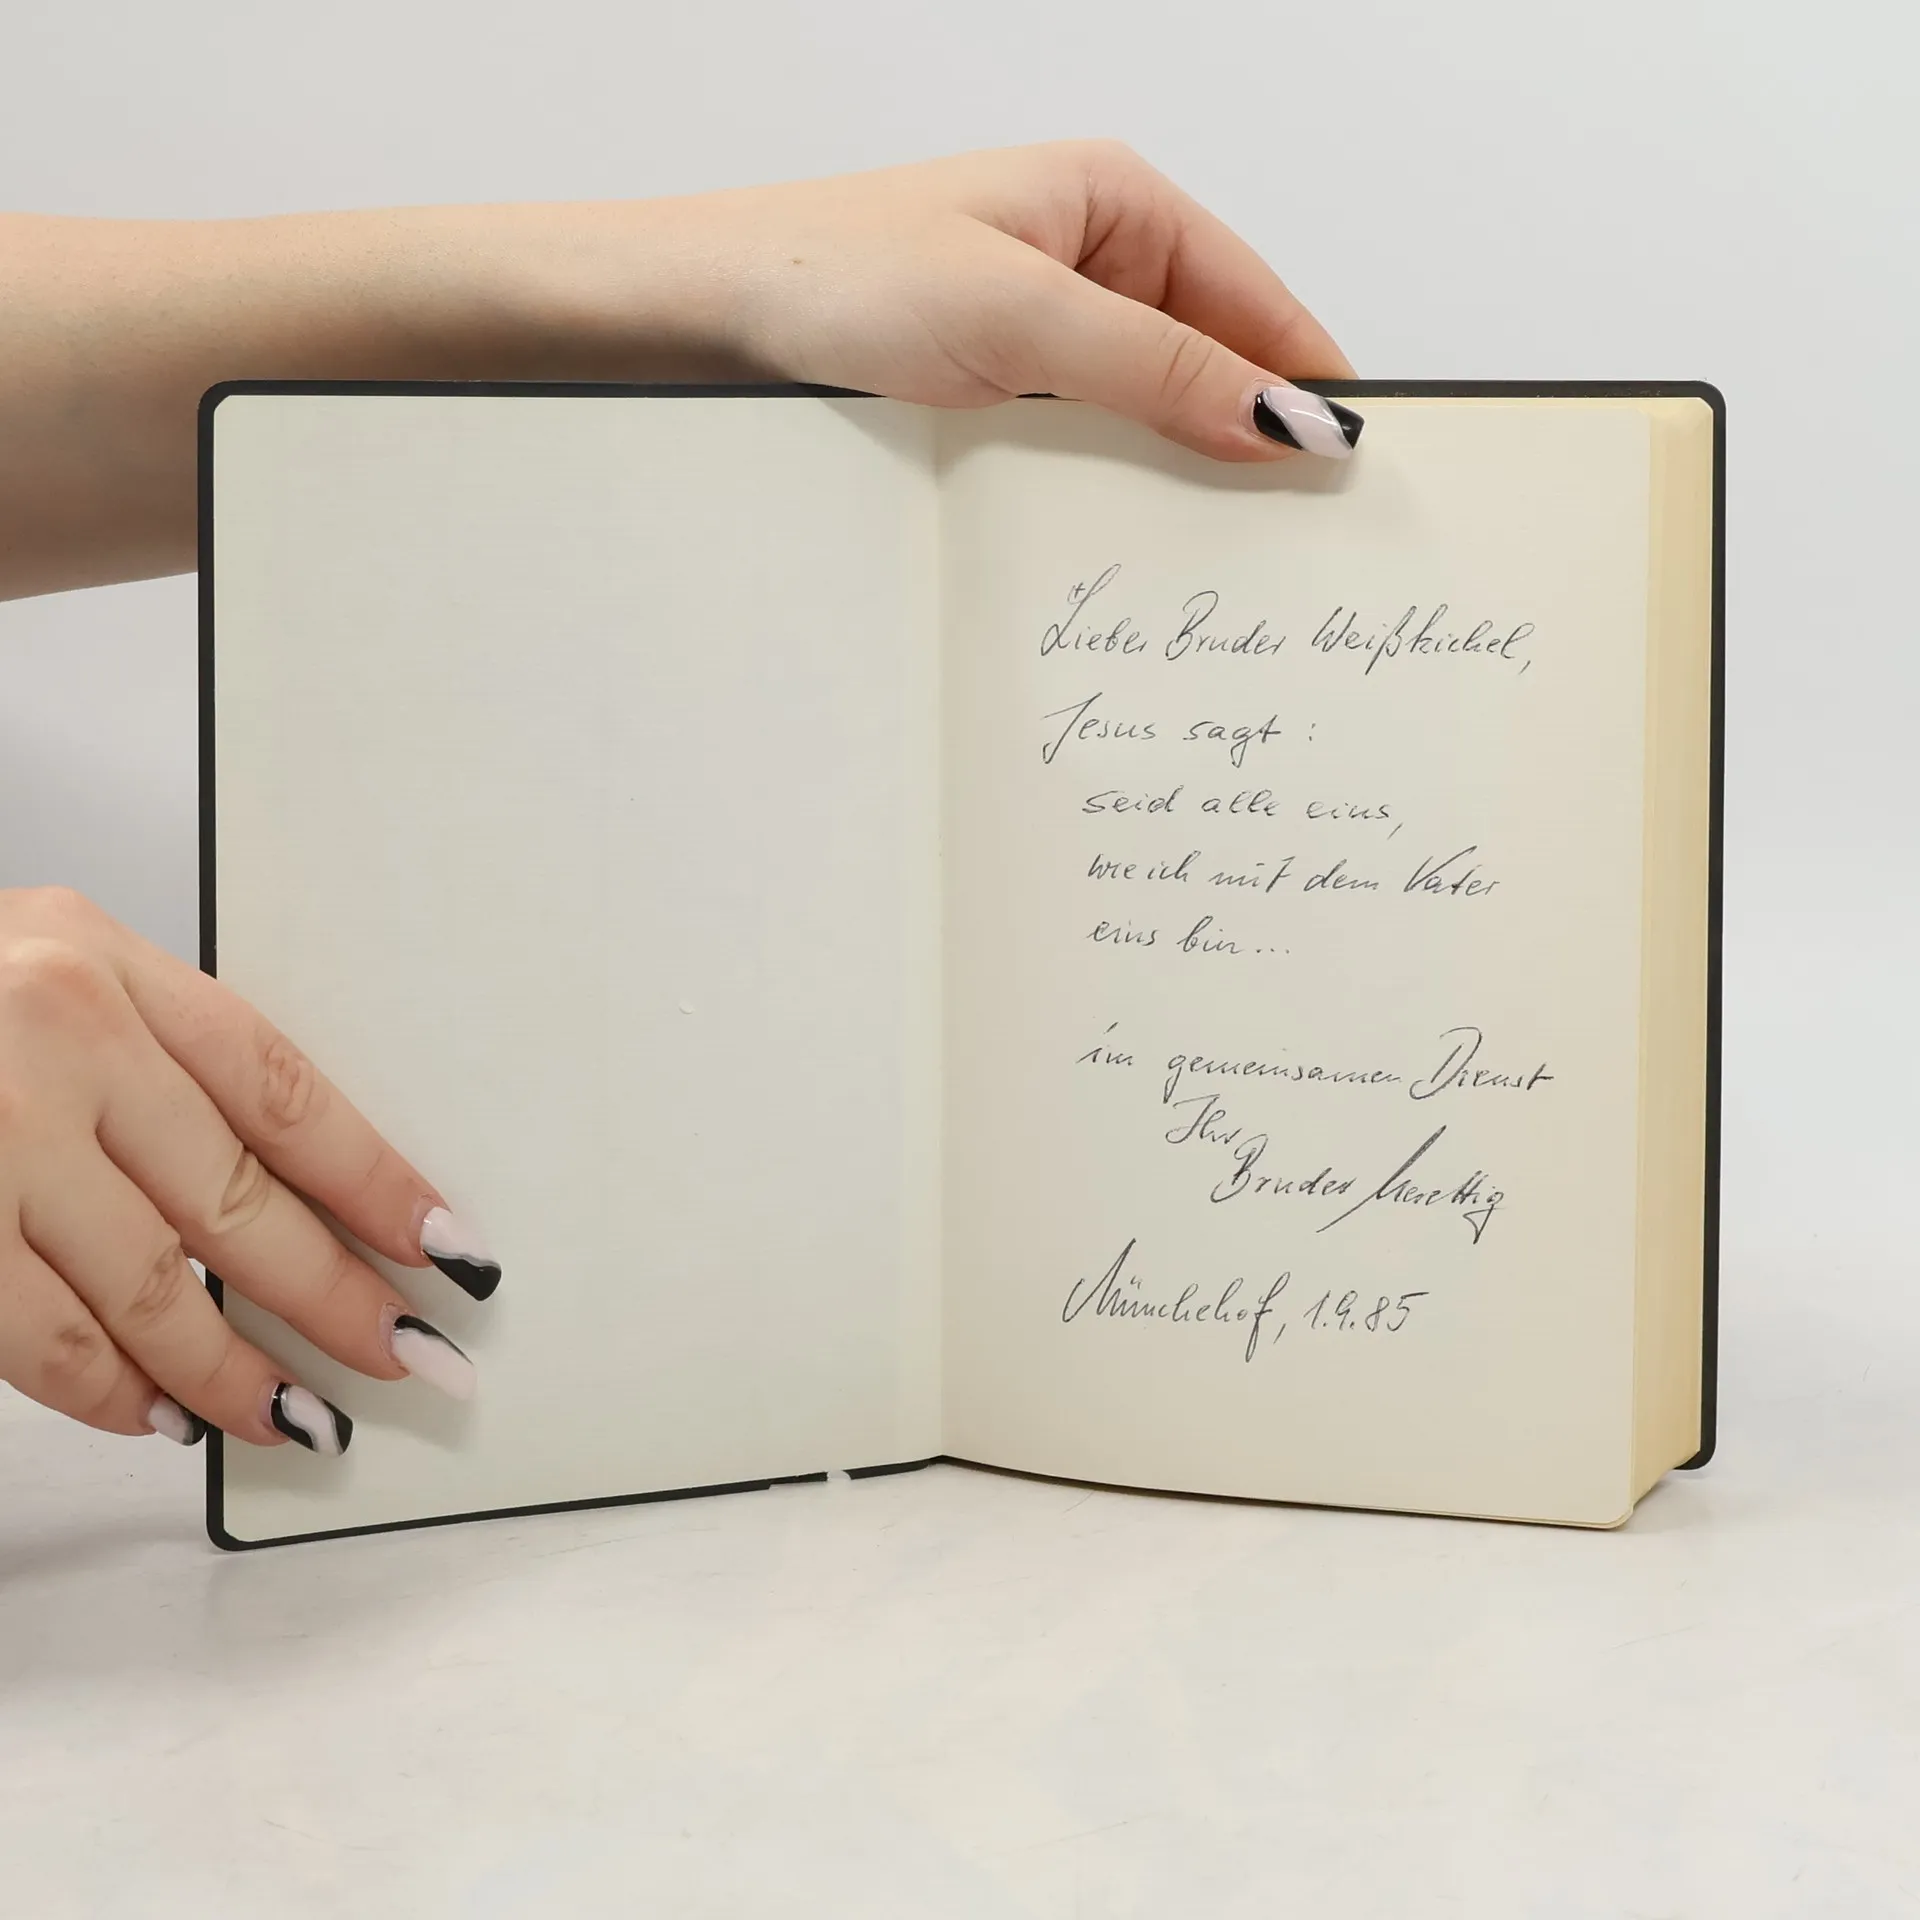 Lieber Bruder Weißkichel,
Jesus sagt :
seid alle eins,
wie ich mit dem Vater
eins bin...
im gemeinsamen Dienst
Ihr
Bruder
Münchehof, 1.9.85